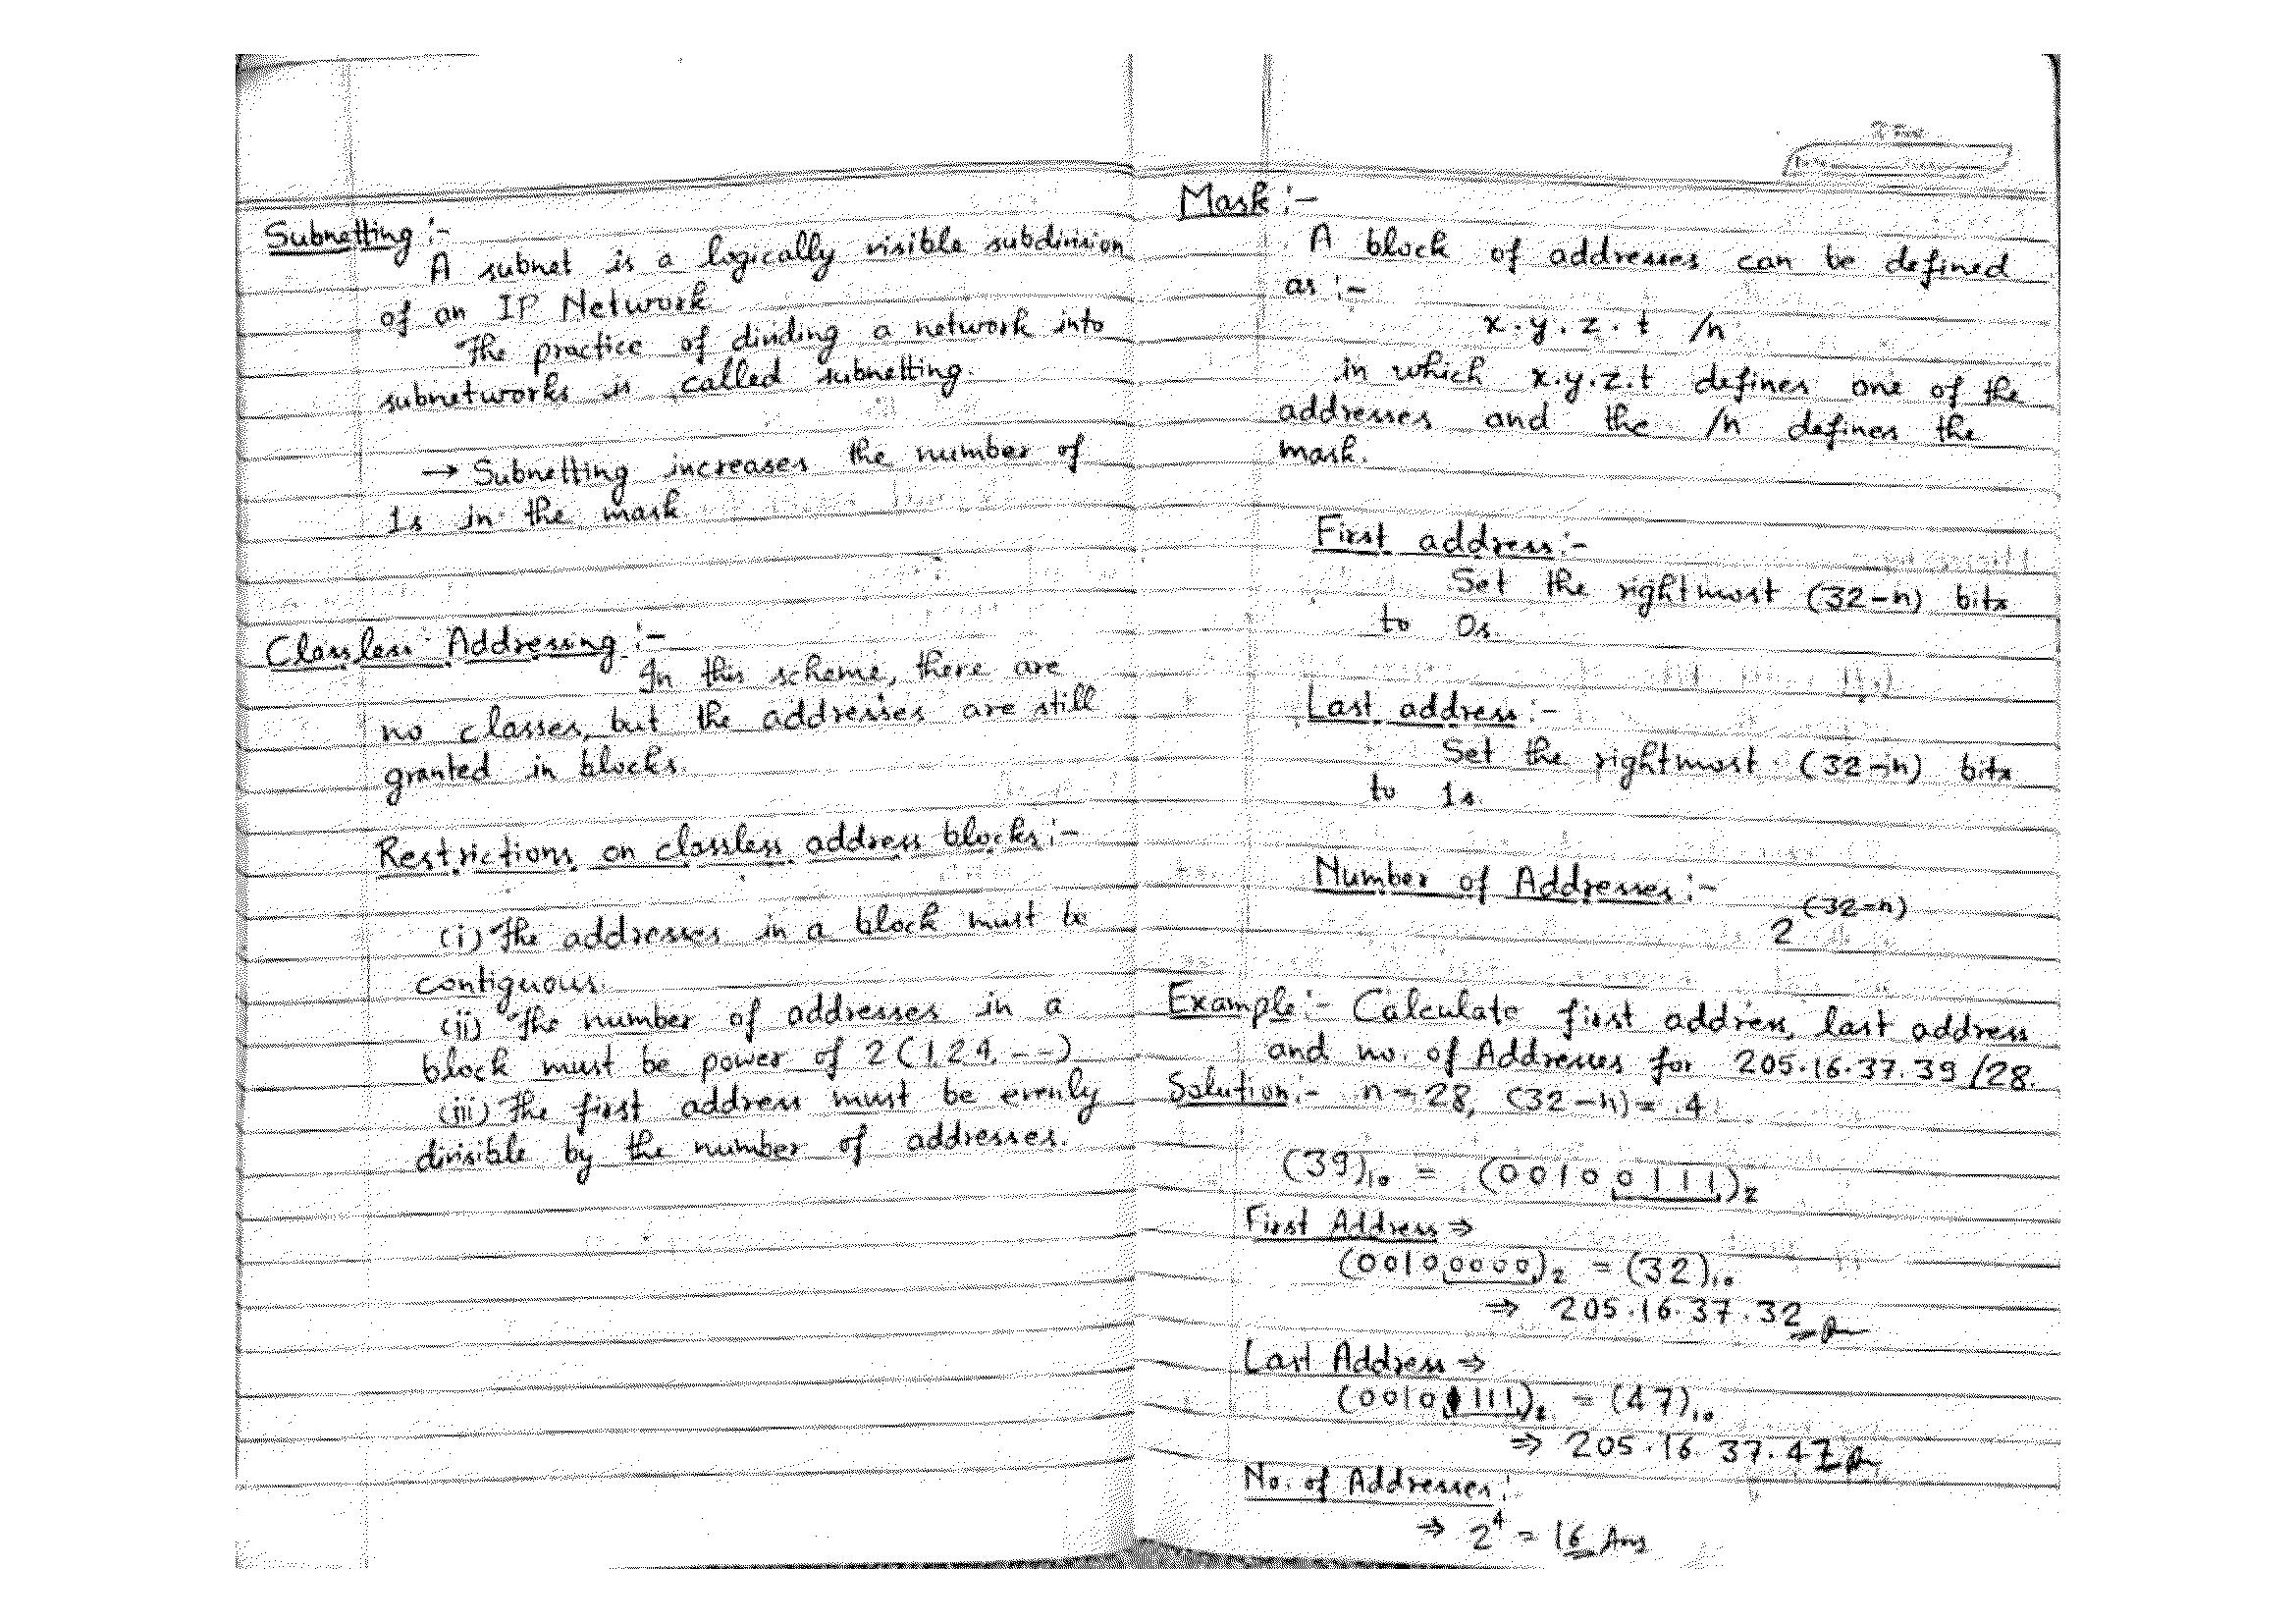 Subnetting :-
A subnet is a logically visible subdivision
of an IP Network
The practice of dividing a network into
subnetworks is called subnetting.
→ Subnetting increases the number of
1s in the mask
Classless Addressing :-
In this scheme, there are
no classes, but the addresses are still
granted in blocks.
Restrictions on classless address blocks :-
(i) The addresses in a block must be
contiguous.
(ii) The number of addresses in a
block must be power of 2 (1,2,4, --)
(iii) The first address must be evenly
divisible by the number of addresses.
Mask :-
A block of addresses can be defined
as :-
x.y.z.t /n
in which x.y.z.t defines one of the
addresses and the /n defines the
mask.
First address :-
Set the rightmost (32-n) bits
to 0s.
Last address :-
Set the rightmost (32-n) bits
to 1s.
Number of Addresses :-
2^(32-n)
Example :- Calculate first address, last address
and no. of Addresses for 205.16.37.39/28.
Solution :- n = 28, (32-n) = 4
(39)₁₀ = (00100111)₂
First Address ⇒
(00100000)₂ = (32)₁₀
⇒ 205.16.37.32
Last Address ⇒
(00101111)₂ = (47)₁₀
⇒ 205.16.37.47
No. of Addresses :-
⇒ 2⁴ = 16 Ans